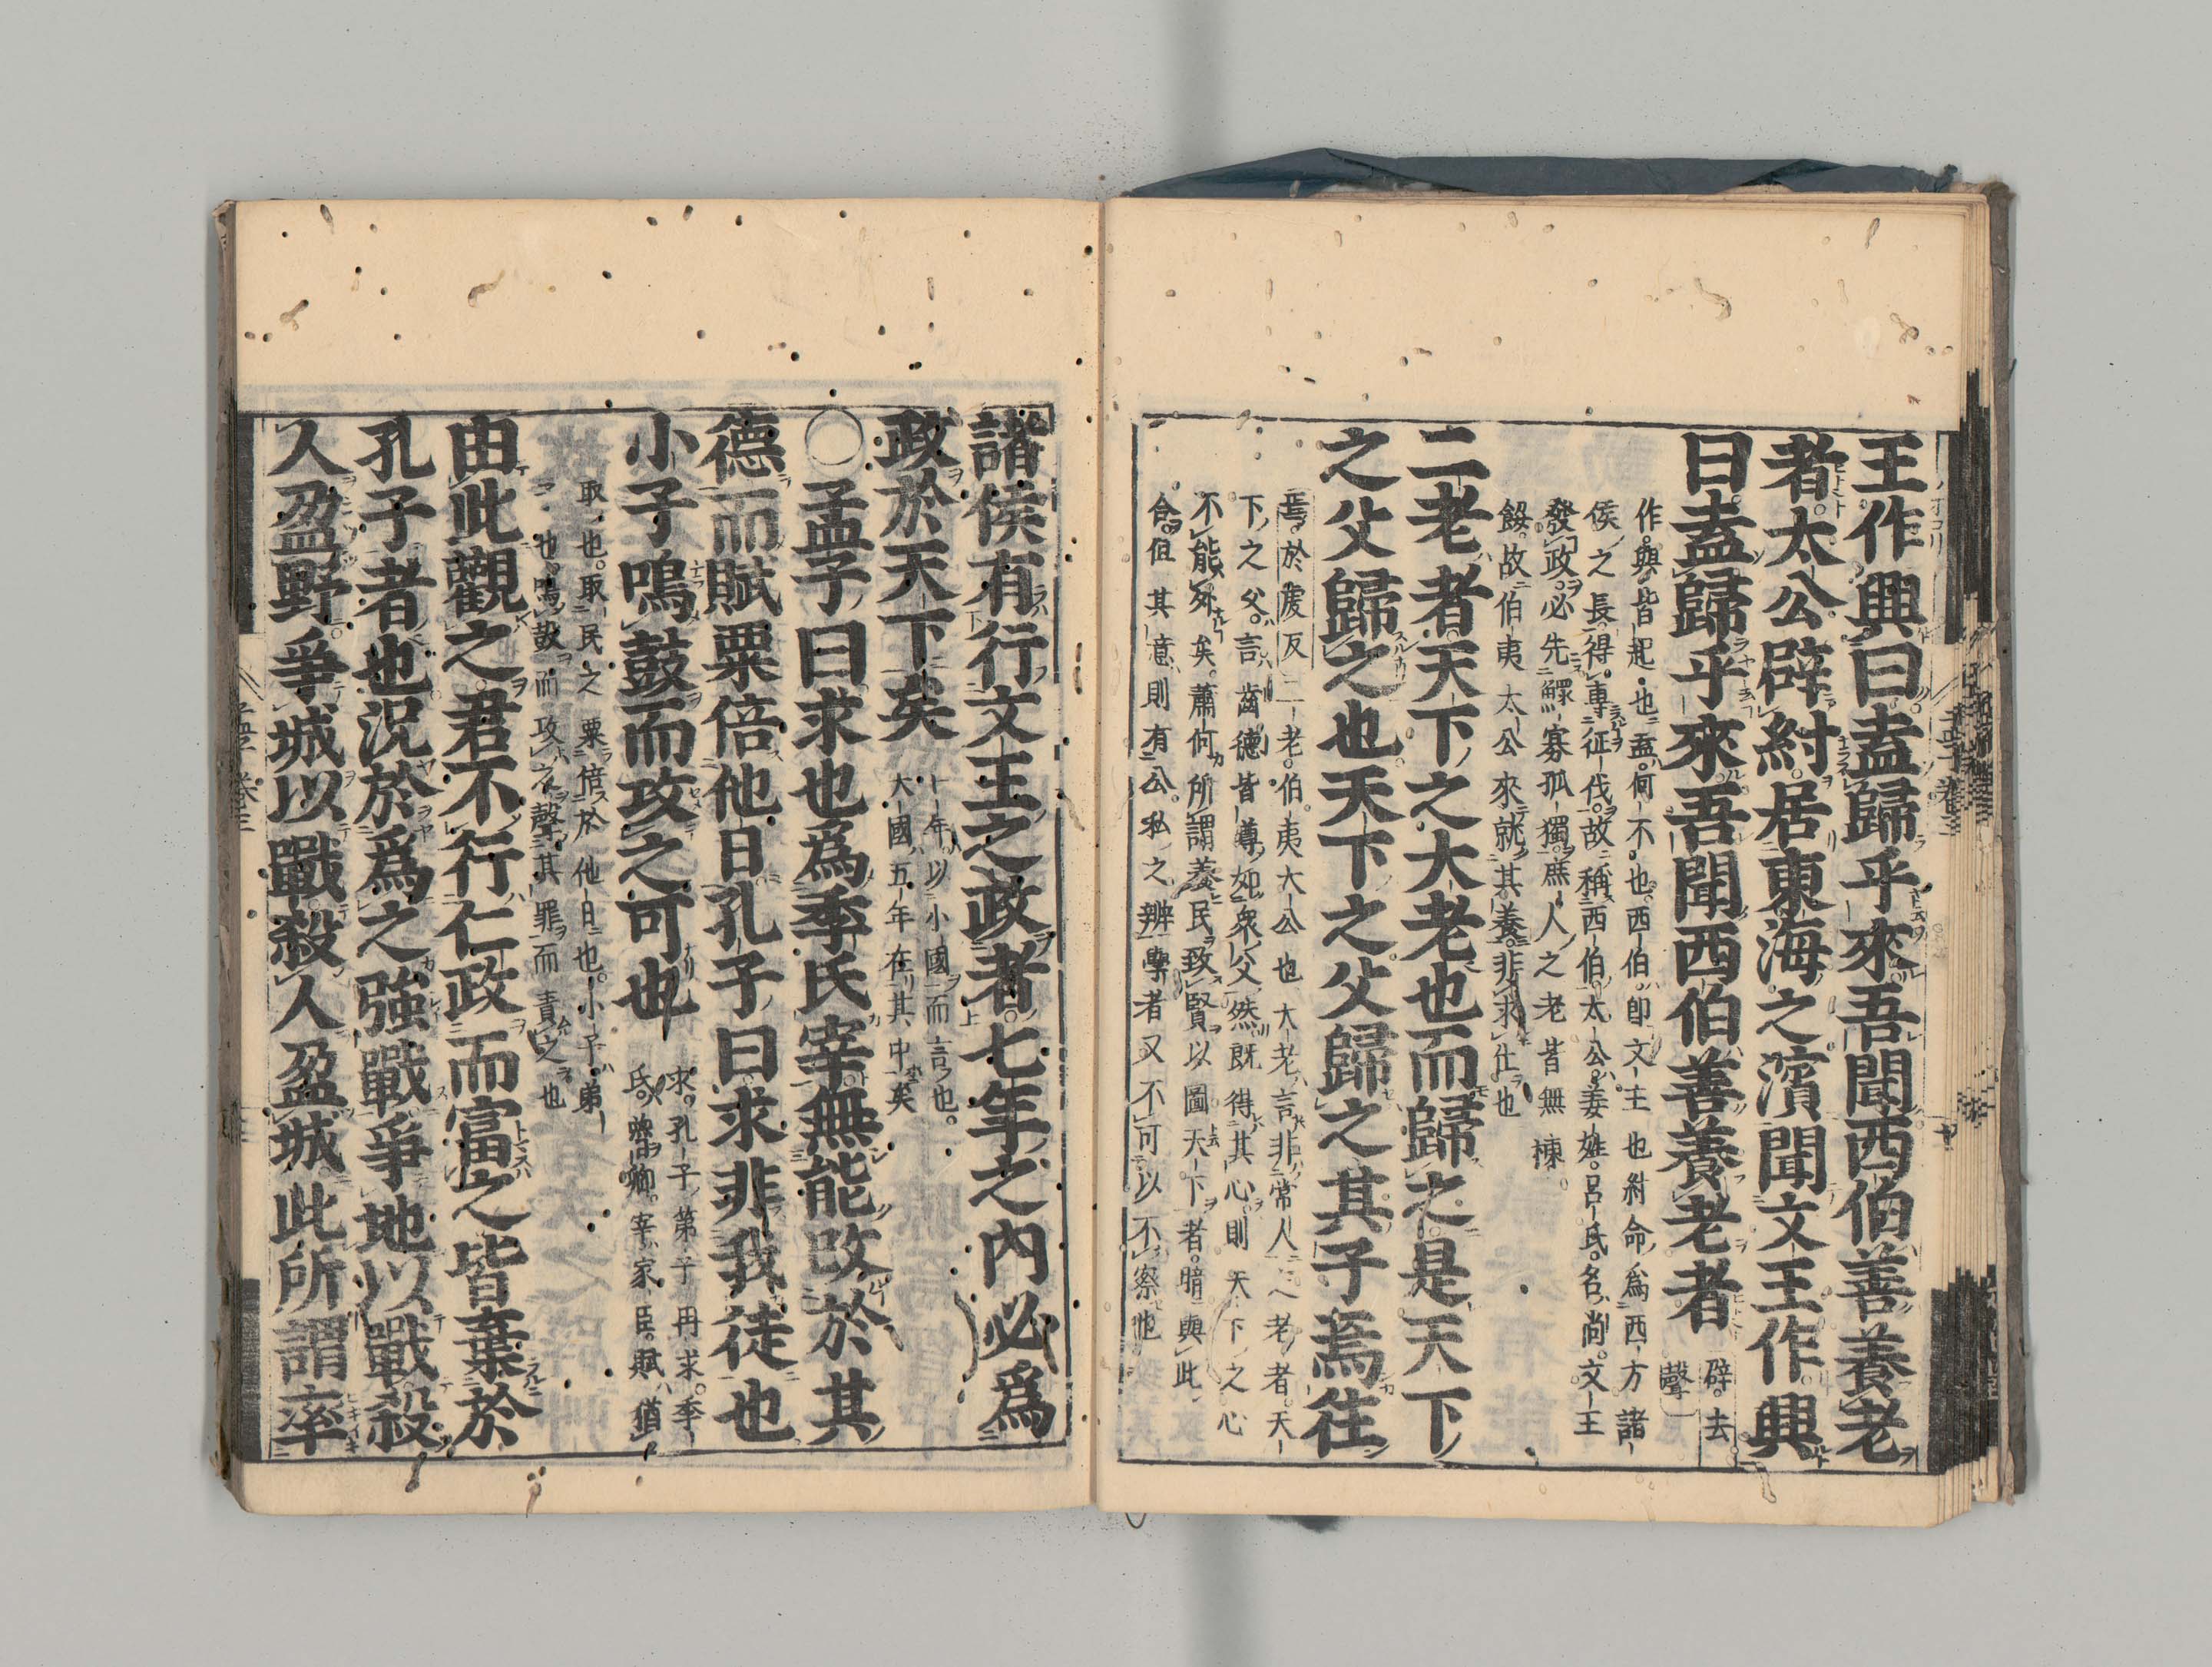 王作興曰盍歸乎來吾聞西伯善養老
者太公辟紂居東海之濱聞文王作興
曰盍歸乎來吾聞西伯善養老者辟去
聲
作興皆起也盍何不也西伯即文王也紂命爲西方諸
侯之長得專征伐故稱西伯太公姜姓呂氏名尚文王
發政必先鰥寡孤獨庶人之老皆無凍
餒故伯夷太公來就其養非求仕也
二老者天下之大老也而歸之是天下
之父歸之也天下之父歸之其子焉往
焉於虔反二老伯夷大公也大老言非常人之老者天
下之父言齒德皆尊如衆父然既得其心則天下之心
不能外矣蕭何所謂養民致賢以圖天下者暗與此
合但其意則有公私之辨學者又不可以不察也
諸侯有行文王之政者七年之內必爲
政於天下矣
七年以小國而言也
大國五年在其中矣
○孟子曰求也爲季氏宰無能改於其
德而賦粟倍他日孔子曰求非我徒也
小子鳴鼓而攻之可也
求孔子第子冉求季
氏魯卿宰家臣賦猶
取也取民之粟倍於他日也小子弟
也鳴鼓而攻之聲其罪而責之也
由此觀之君不行仁政而富之皆棄於
孔子者也況於爲之強戰爭地以戰殺
人盈野爭城以戰殺人盈城此所謂率